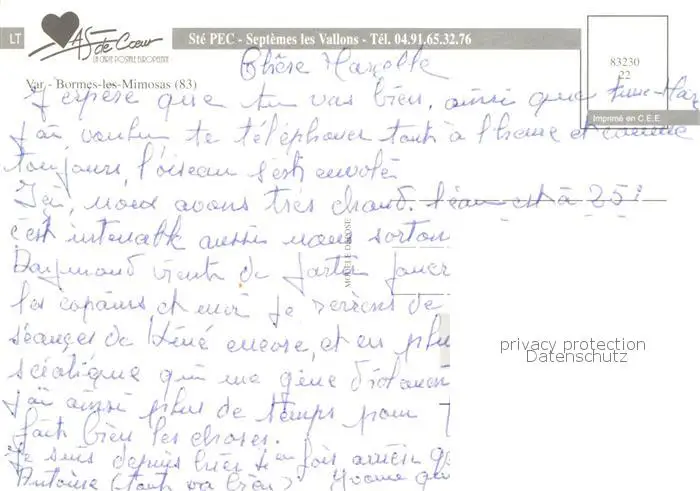 LT
AS de Cœur
LA CARTE POSTALE EUROPEENNE
Sté PEC - Septèmes les Vallons - Tél. 04.91.65.32.76
83230
22
Imprimé en C.E.E.
Var - Bormes-les-Mimosas (83)
Chère Marcelle
J'espère que tu vas bien, ainsi que
J'ai voulu te téléphoner tout à l'heure et comme
toujours, l'oiseau s'est envolé
Ici, nous avons très chaud. l'eau est à 25°
c'est intenable aussi nous sorton
Raymond vient de partir jouer
les copains et moi je reviens de
séances de kiné encore, et en plu
sciatique qui me gène
J'ai ainsi plus de temps pour
faire bien les choses.
Je suis depuis hier fois arrière
Antoine (tout va bien) Yvonne
MODELE DEPOSE
privacy protection
Datenschutz